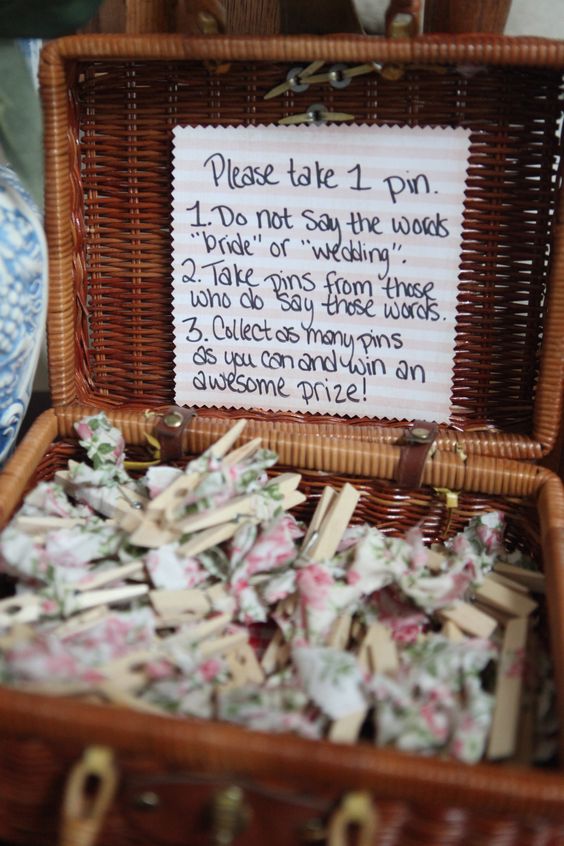 Please take 1 pin.
1. Do not say the words
"bride" or "wedding".
2. Take pins from those
who do say those words.
3. Collect as many pins
as you can and win an
awesome prize!